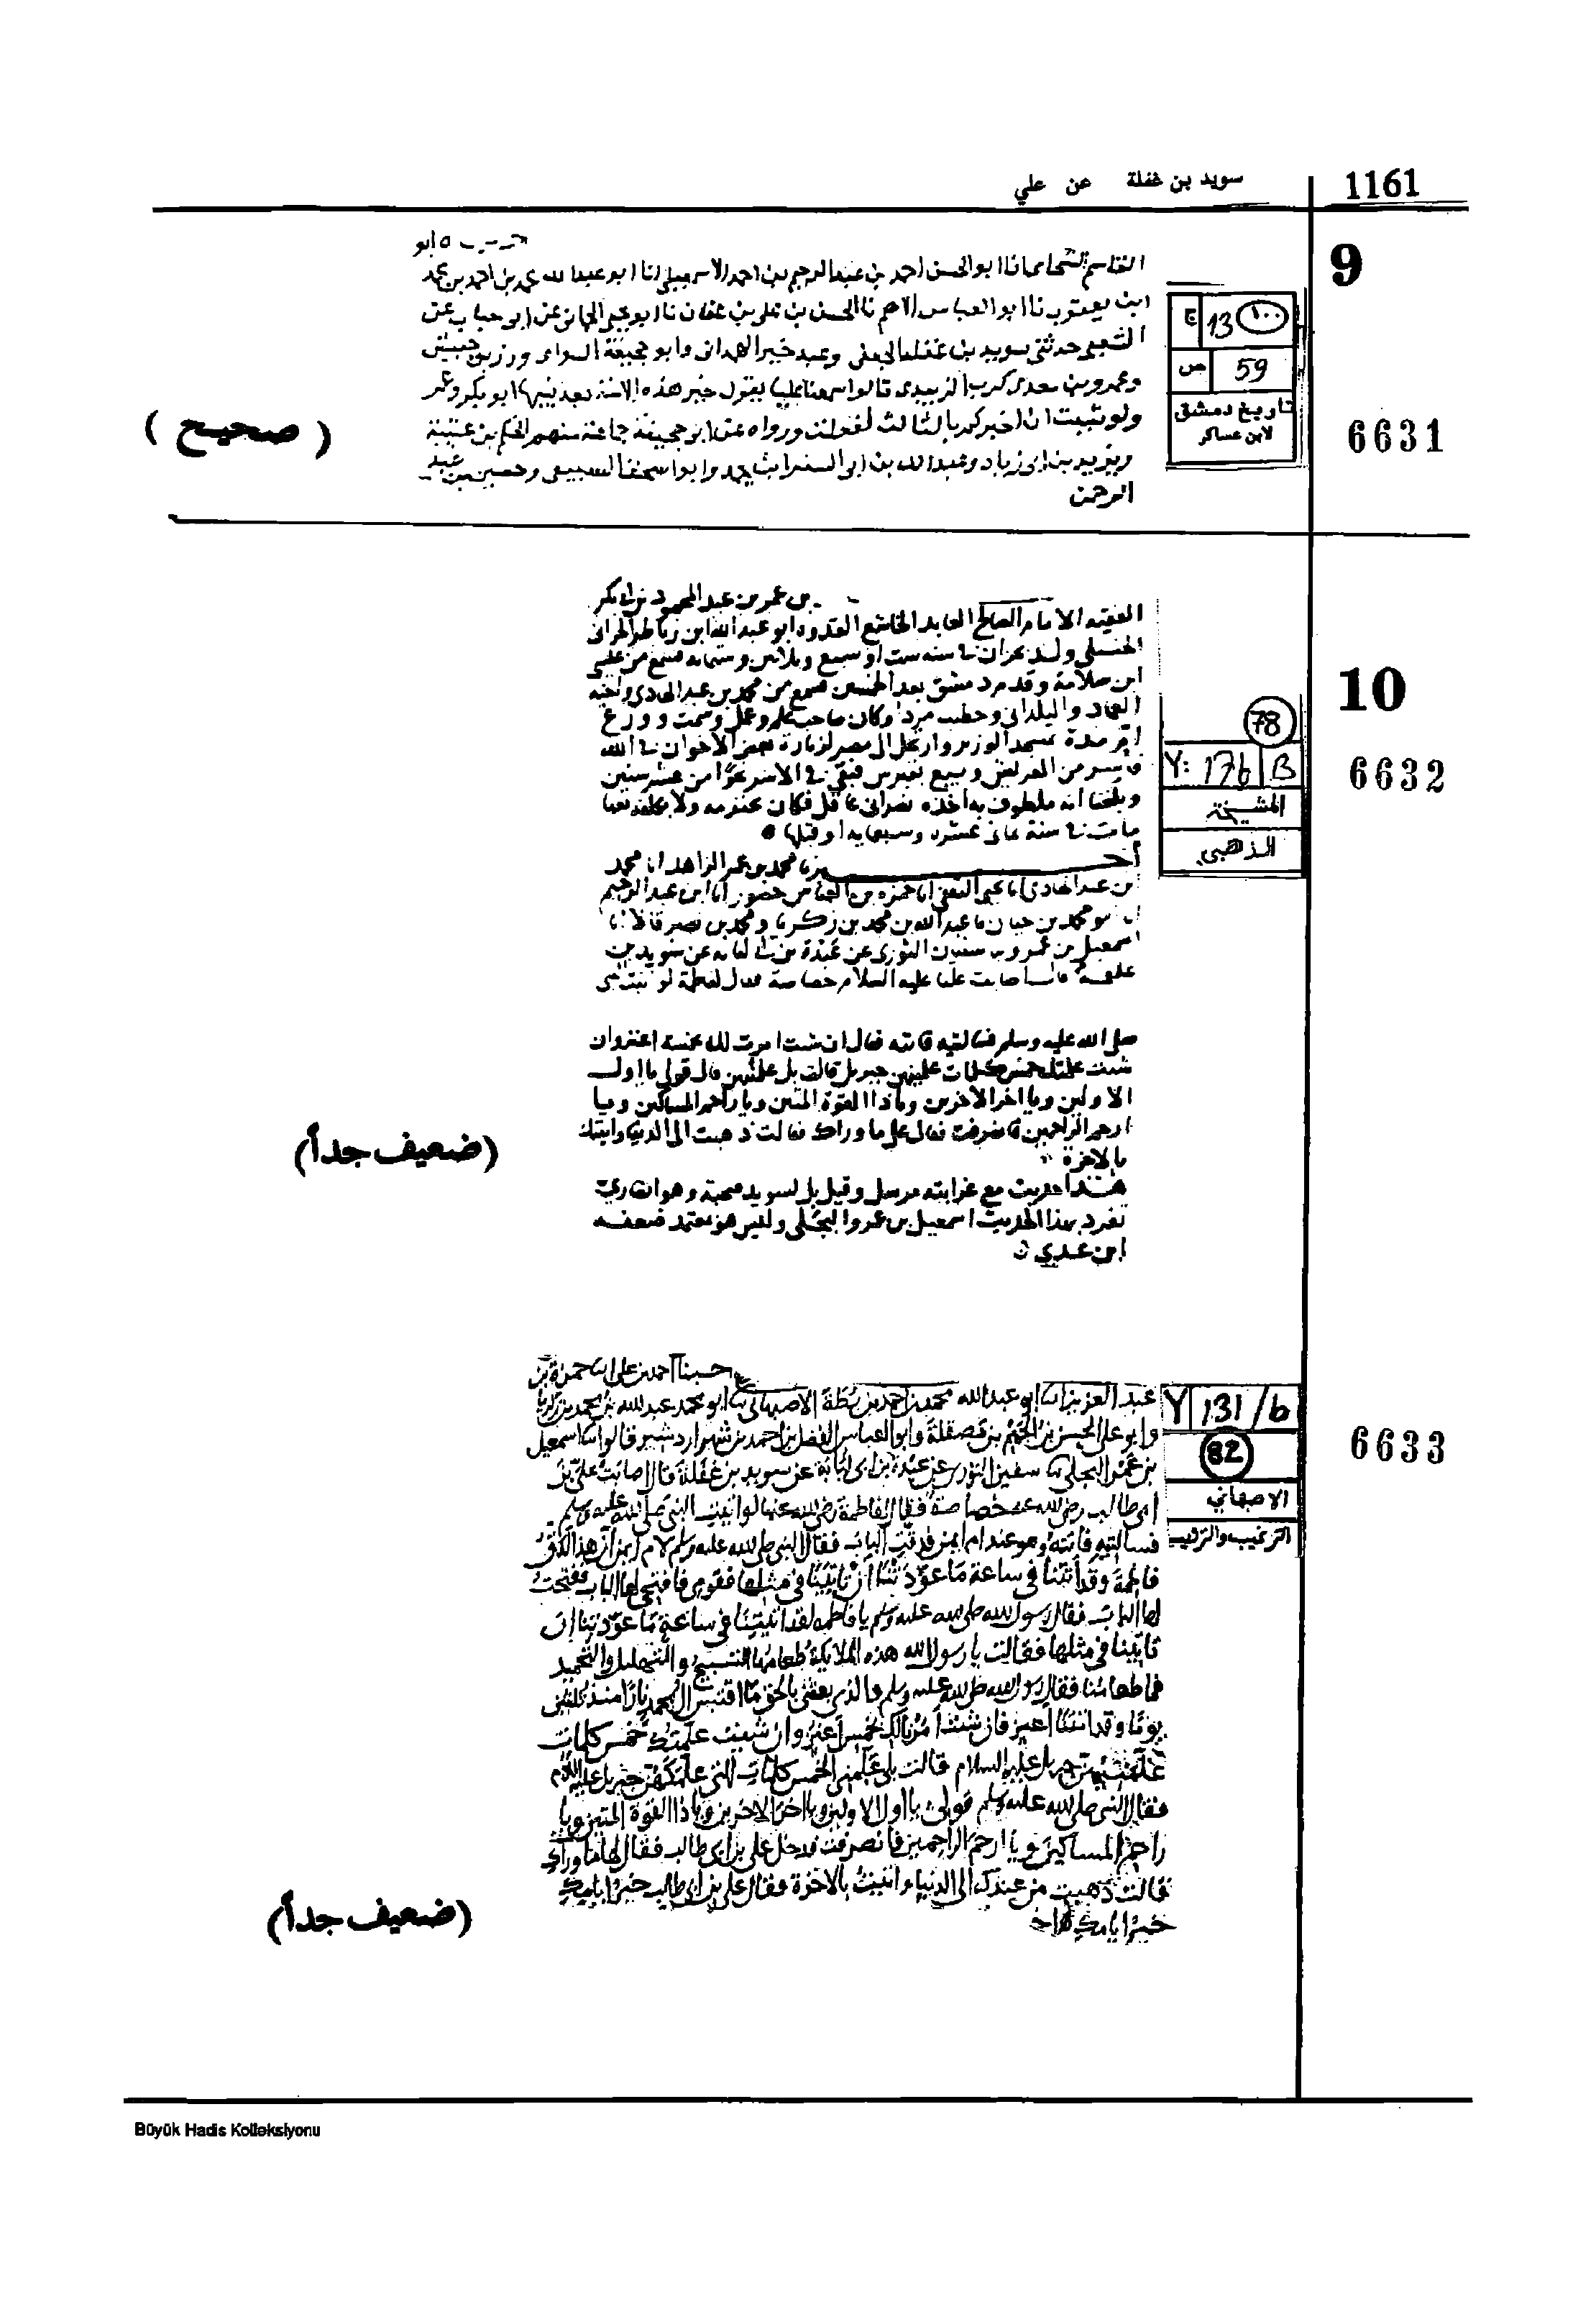 1161
سويد بن غفلة عن علي
9
ابو
القاسم الشحامي انا ابو الحسن احمد بن عبد الرحيم بن احمد الاسمعيلي انا ابو عبد الله محمد بن احمد بن محمد
ابن يعقوب نا ابو العباس الاصم نا الحسن بن علي بن عفان نا ابو يحيى الحماني عن ابي جناب عن
الشعبي حدثني سويد بن غفلة الجعفي وعبد خير الهمداني وابو جحيفة السوائي وزر بن حبيش
وعمرو بن معدي كرب الزبيدي قالوا سمعنا عليا يقول خير هذه الامة بعد نبيها ابو بكر وعمر
ولو شيت ان اخبركم بالثالث لفعلت ورواه عن ابي جحيفة جماعة منهم الحكم بن عتيبة
ويزيد بن ابي زياد وعبد الله بن ابي السفر ابو اسحق السبيعي وحصين بن عبد
الرحمن
ج 13 ١٠٠
ص 59
تاريخ دمشق
لابن عساكر
6631
( صحيح )
10
بن عمر بن عبد المحمود بن ابي بكر
الفقيه الامام الصالح العابد الخاشع القدوة ابو عبد الله ابن زباطر الحراني
الحنبلي ولد بحران في سنه ست او سبع وثلاثين وستمايه سمع من عيسى
ابن سلامة وقدم دمشق بعد الخمسين فسمع من محمد بن عبد الهادي واخيه
العماد والبلداني وخطيب مردا وكان صاحب علم وعمل وسمت وورع
امّ مدة بمسجد الوزير وارتحل الى مصر لزيارة بعض الاخوان في الله
فاسر من العريش وبيع بقبرس فبقي في الاسر نحوًا من عشر سنين
وبلغنا انه ملطوف به اخذه نصراني عاقل فكان يحترمه ولا يكلفه تعبا
مات في سنة ثماني عشرة وسبعمايه او قبلها
اخبرنا محمد بن عمر الزاهد انا محمد
بن عبد الهادي انا يحيى الثقفي انا حمزه بن العباس حضورا انا ابن عبد الرحيم
ابو محمد بن حيان نا عبد الله بن محمد بن زكريا ومحمد بن نصر قالا نا
اسمعيل بن عمرو نا سفيان الثوري عن عبدة بن ابي لبابه عن سويد بن
غفلة قال اصابت عليا عليه السلام خصاصة فقال لفاطمة لو اتيت النبي
صلى الله عليه وسلم فسالتيه فاتته فقال ان شئت امرت لك بخمسة اعنز وان
شئت علمتك خمس كلمات علمنيهن جبريل قالت بل علمنيهن قال قولي يا اول
الاولين ويا اخر الاخرين ويا ذا القوة المتين ويا راحم المساكين ويا
ارحم الراحمين فانصرفت فقال علي ما وراك فقالت ذهبت الى الدنيا واتيتك
بالاخرة
هذا حديث مع غرابته مرسل وقيل بل لسويد صحبة
تفرد بهذا الحديث اسمعيل بن عمرو البجلي وليس هو بمعتمد ضعفه
ابن عدي
78
Y: 176 B
المشيخة
الذهبي
6632
(ضعيف جداً)
احمد بن علي انا حمزة بن
عبد العزيز انا ابو عبد الله محمد بن احمد بن بُطّة الاصبهاني نا ابو محمد عبد الله بن محمد بن زكريا
وابو علي الحسن بن الجهم بن مصقلة وابو العباس الفضل بن احمد بن شهرارد شير قالوا نا اسمعيل
بن عَمْرو البجلي نا سفين الثوري عن عبدة بن ابي لبابة عن سويد بن غفلة قال اصابت علي بن
ابي طالب رضي الله عنه خصاصة فقال لفاطمة رضي الله عنها لو اتيت النبي صلى الله عليه وسلم
فسالتيه فاتته وهو عند ام ايمن فدقت الباب فقال النبي صلى الله عليه وسلم لام ايمن ان هذا لدق
فاطمة وقد اتتنا في ساعة ما عوّدتنا ان تاتينا في مثلها فقومي فافتحي لها الباب ففتحت
لها الباب فقال رسول الله صلى الله عليه وسلم يا فاطمه لقد اتيتنا في ساعة ما عوّدتنا ان
تاتينا في مثلها فقالت يا رسول الله هذه الملايكة طعامها التسبيح والتهليل والتحميد
فما طعامنا فقال رسول الله صلى الله عليه وسلم والذي بعثني بالحق ما اقتبس ال محمد نارًا منذ ثلثين
يومًا وقد اتتنا اعنز فان شئت أمرنا لك بخمس اعنز وان شئت علمتك خمس كلمات
علمنيهن جبريل عليه السلام قالت بل علمني الخمس كلمات التي علمكهن جبريل عليه السلام
فقال النبي صلى الله عليه وسلم قولي يا اول الاولين ويا اخر الاخرين ويا ذا القوة المتين ويا
راحم المساكين ويا ارحم الراحمين فانصرفت فدخل علي بن ابي طالب فقال لها ما وراك
قالت ذهبت من عندك الى الدنيا واتيتك بالاخرة فقال علي بن ابي طالب خيرا ايامك
خيرًا ايامك
Y 131/b
82
الاصبهاني
الترغيب والترهيب
6633
(ضعيف جداً)
Büyük Hadis Kolleksiyonu